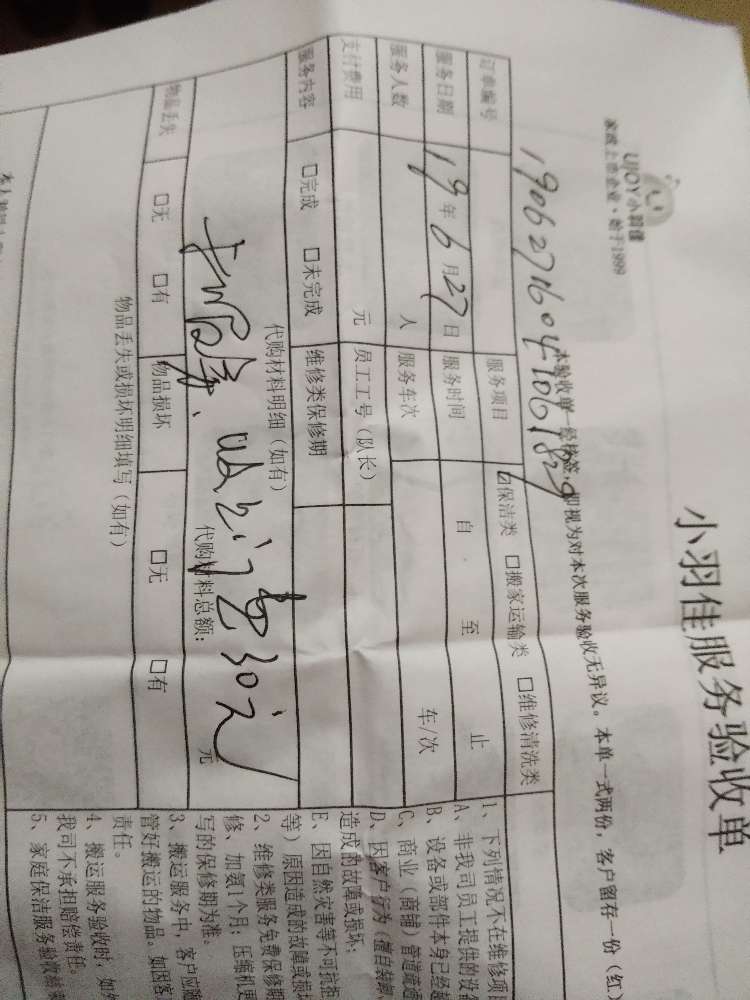 UJOY小羽佳
家政上市企业·始于1999
小羽佳服务验收单
本验收单一经核签，即视为对本次服务验收无异议。本单一式两份，客户留存一份（红
订单编号 19062716041061829
服务项目 ☑保洁类 □搬家运输类 □维修清洗类
服务日期 19年6月27日 服务时间 自 至 止
服务人数 人 服务车次 车/次
支付费用 元 员工工号（队长）
服务内容 □完成 □未完成 维修类保修期
代购材料明细（如有）
30元
代购材料总额： 元
物品丢失 □无 □有 物品损坏 □无 □有
物品丢失或损坏明细填写（如有）
1、下列情况不在维修项
A、非我司员工提供的设备
B、设备或部件本身已经
C、商业（商铺）管道疏通
D、因客户行为（擅自装卸
造成的故障或损坏；
E、因自然灾害等不可抗拒
等）原因造成的故障或损
2、维修类服务免费保修期
修、加氨1个月；压缩机更
写的保修期为准。
3、搬运服务中，客户应
管好搬运的物品。如因客
责任。
4、搬运服务验收时，如
我司不承担赔偿责任。
5、家庭保洁服务验收结